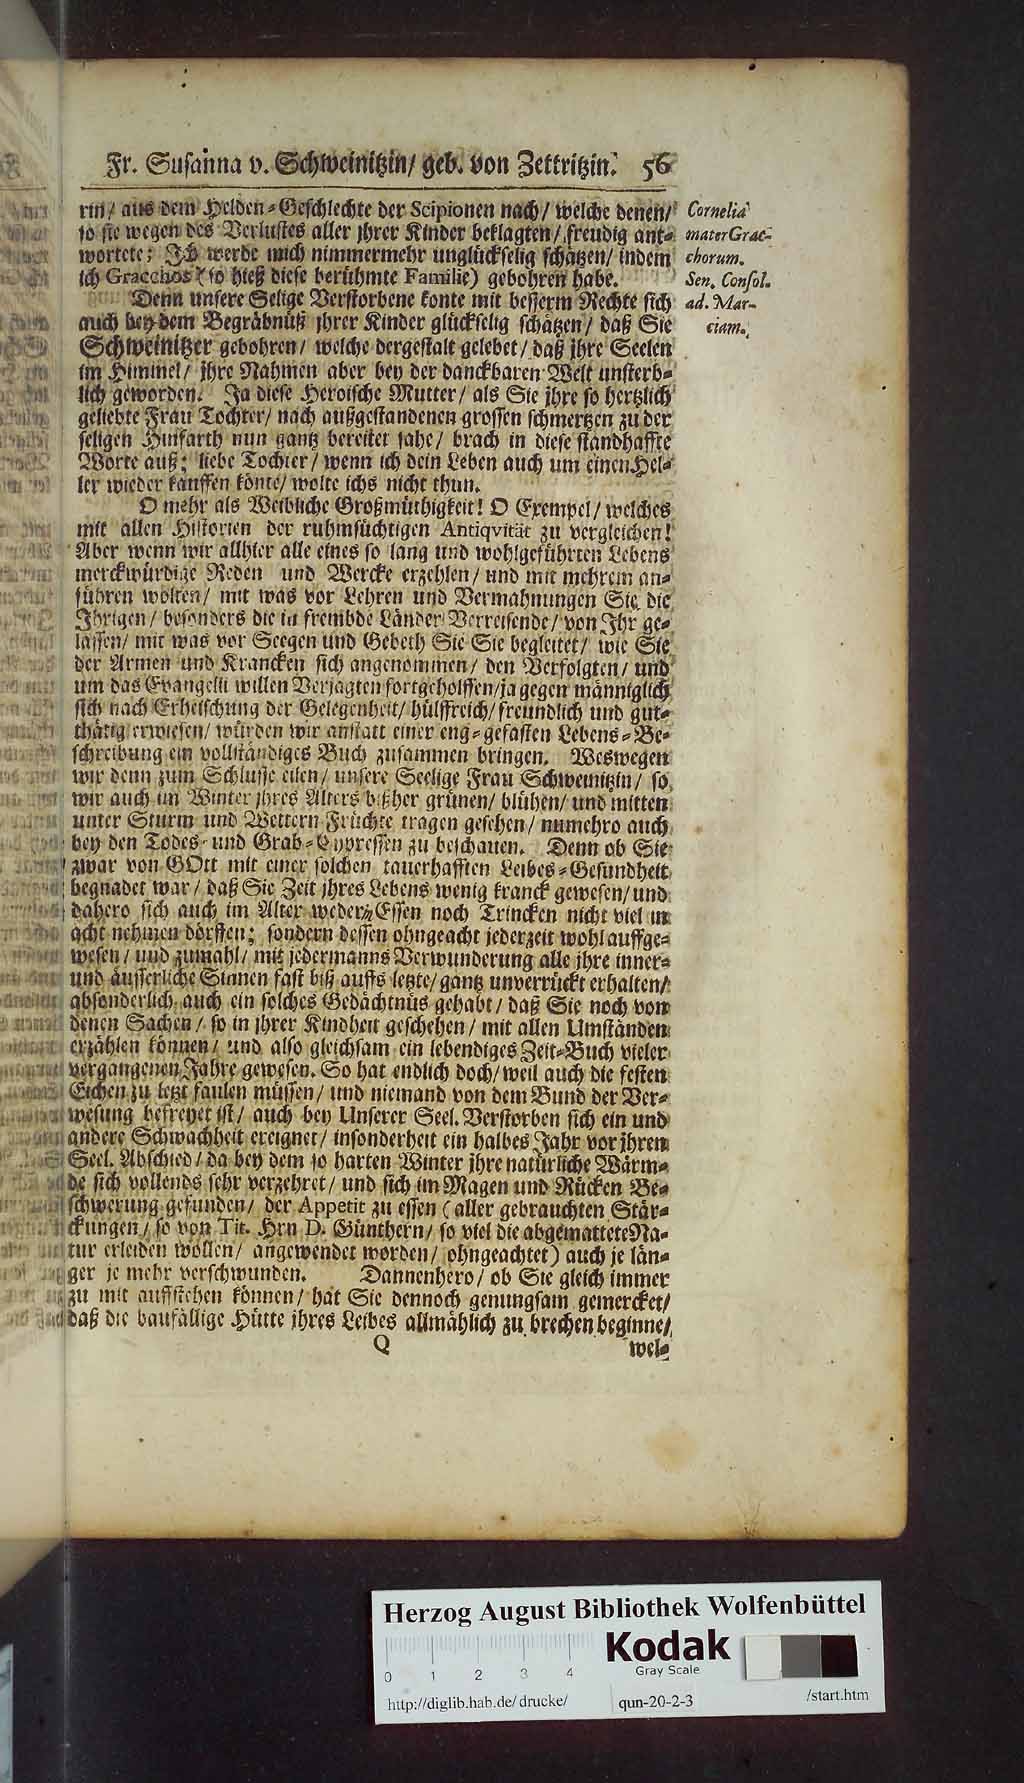 Fr. Susanna v. Schweinitzin/ geb. von Zettritzin. 56
rin/ aus dem Helden-Geschlechte der Scipionen nach/ welche denen/
so sie wegen des Verlustes aller jhrer Kinder beklagten/ freudig ant-
wortete; Ich werde mich nimmermehr unglückselig schätzen/ indem
ich Gracchos (so hieß diese berühmte Familie) gebohren habe.
Cornelia
mater Grac-
chorum.
Sen. Consol.
ad. Mar-
ciam.
Denn unsere Selige Verstorbene konte mit besserm Rechte sich
auch bey dem Begräbnüß jhrer Kinder glückselig schätzen/ daß Sie
Schweinitzer gebohren/ welche dergestalt gelebet/ daß jhre Seelen
im Himmel/ jhre Nahmen aber bey der danckbaren Welt unsterb-
lich geworden. Ja diese Heroische Mutter/ als Sie jhre so hertzlich
geliebte Frau Tochter/ nach außgestandenen grossen schmertzen zu der
seligen Hinfarth nun gantz bereitet sahe/ brach in diese standhaffte
Worte auß; liebe Tochter/ wenn ich dein Leben auch um einen Hel-
ler wieder kauffen könte/ wolte ichs nicht thun.
O mehr als Weibliche Großmüthigkeit! O Exempel/ welches
mit allen Historien der ruhmsüchtigen Antiqvität zu vergleichen!
Aber wenn wir allhier alle eines so lang und wohlgeführten Lebens
merckwürdige Reden und Wercke erzehlen/ und mit mehrem an-
führen wolten/ mit was vor Lehren und Vermahnungen Sie die
Jhrigen/ besonders die in frembde Länder Verreisende/ von Jhr ge-
lassen/ mit was vor Seegen und Gebeth Sie Sie begleitet/ wie Sie
der Armen und Krancken sich angenommen/ den Verfolgten/ und
um das Evangelii willen Verjagten fortgeholffen/ ja gegen männiglich
sich nach Erheischung der Gelegenheit/ hülffreich/ freundlich und gut-
thätig erwiesen/ würden wir anstatt einer eng-gefasten Lebens-Be-
schreibung ein vollständiges Buch zusammen bringen. Weswegen
wir denn zum Schlusse eilen/ unsere Seelige Frau Schweinitzin/ so
wir auch im Winter jhres Alters bißher grünen/ blühen/ und mitten
unter Sturm und Wettern Früchte tragen gesehen/ numehro auch
bey den Todes- und Grab-Cypressen zu beschauen. Denn ob Sie
zwar von GOtt mit einer solchen tauerhafften Leibes-Gesundheit
begnadet war/ daß Sie Zeit jhres Lebens wenig kranck gewesen/ und
dahero sich auch im Alter weder in Essen noch Trincken nicht viel in
acht nehmen dörffen; sondern dessen ohngeacht jederzeit wohl auffge-
wesen/ und zumahl/ mit jedermanns Verwunderung alle jhre inner-
und äusserliche Sinnen fast biß auffs letzte/ gantz unverrückt erhalten/
absonderlich auch ein solches Gedächtnüs gehabt/ daß Sie noch von
denen Sachen/ so in jhrer Kindheit geschehen/ mit allen Umständen
erzählen können/ und also gleichsam ein lebendiges Zeit-Buch vieler
vergangenen Jahre gewesen. So hat endlich doch/ weil auch die festen
Eichen zu letzt faulen müssen/ und niemand von dem Bund der Ver-
wesung befreyet ist/ auch bey Unserer Seel. Verstorben sich ein und
andere Schwachheit ereignet/ insonderheit ein halbes Jahr vor jhren
Seel. Abschied/ da bey dem so harten Winter jhre natürliche Wärm-
de sich vollends sehr verzehret/ und sich im Magen und Rücken Be-
schwerung gefunden/ der Appetit zu essen (aller gebrauchten Stär-
ckungen/ so von Tit. Hrn D. Günthern/ so viel die abgemattete Na-
tur erleiden wollen/ angewendet worden/ ohngeachtet) auch je län-
ger je mehr verschwunden. Dannenhero/ ob Sie gleich immer
zu mit auffstehen können/ hat Sie dennoch genungsam gemercket/
daß die baufällige Hütte jhres Leibes allmählich zu brechen beginne/
Q wel-
Herzog August Bibliothek Wolfenbüttel
Kodak
Gray Scale
0 1 2 3 4
http://diglib.hab.de/drucke/ qun-20-2-3 /start.htm